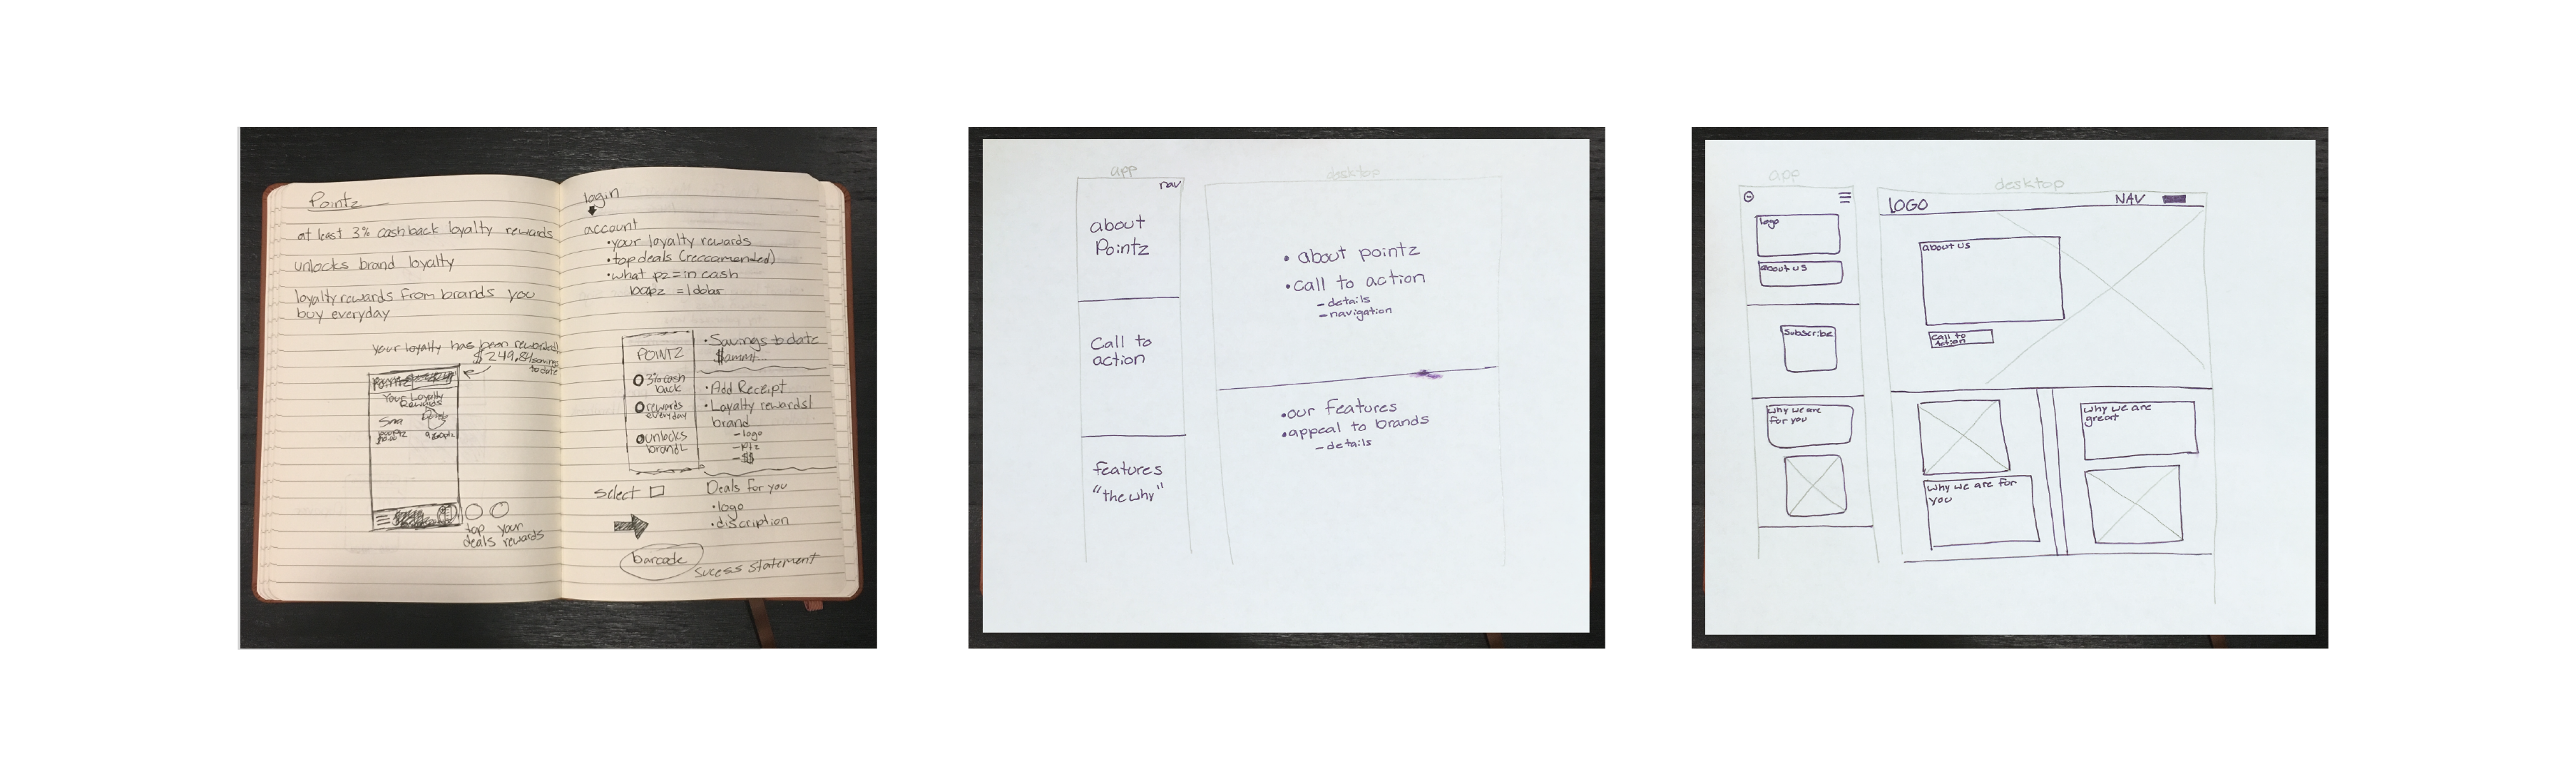 Pointz
at least 3% cash back loyalty rewards
unlocks brand loyalty
loyalty rewards from brands you
buy everyday
your loyalty has been rewarded!
$249.84 savings
to date
Your Loyalty
Rewards
top your
deals rewards
login
account
•your loyalty rewards
•top deals (reccomended)
•what pz=in cash
100pz =1dollar
POINTZ
3% cash
back
rewards
everyday
unlocks
brand
•Savings to date
$ammt...
•Add Receipt
•Loyalty rewards/
brand
-logo
-ptz
-$$
select
Deals for you
•logo
•discription
barcode
sucess statement
app
nav
about
Pointz
Call to
action
features
"the why"
desktop
•about pointz
•call to action
-details
-navigation
•our features
•appeal to brands
-details
app
logo
about us
Subscribe
why we are
for you
desktop
LOGO
NAV
about us
call to
action
why we are
great
why we are for
you